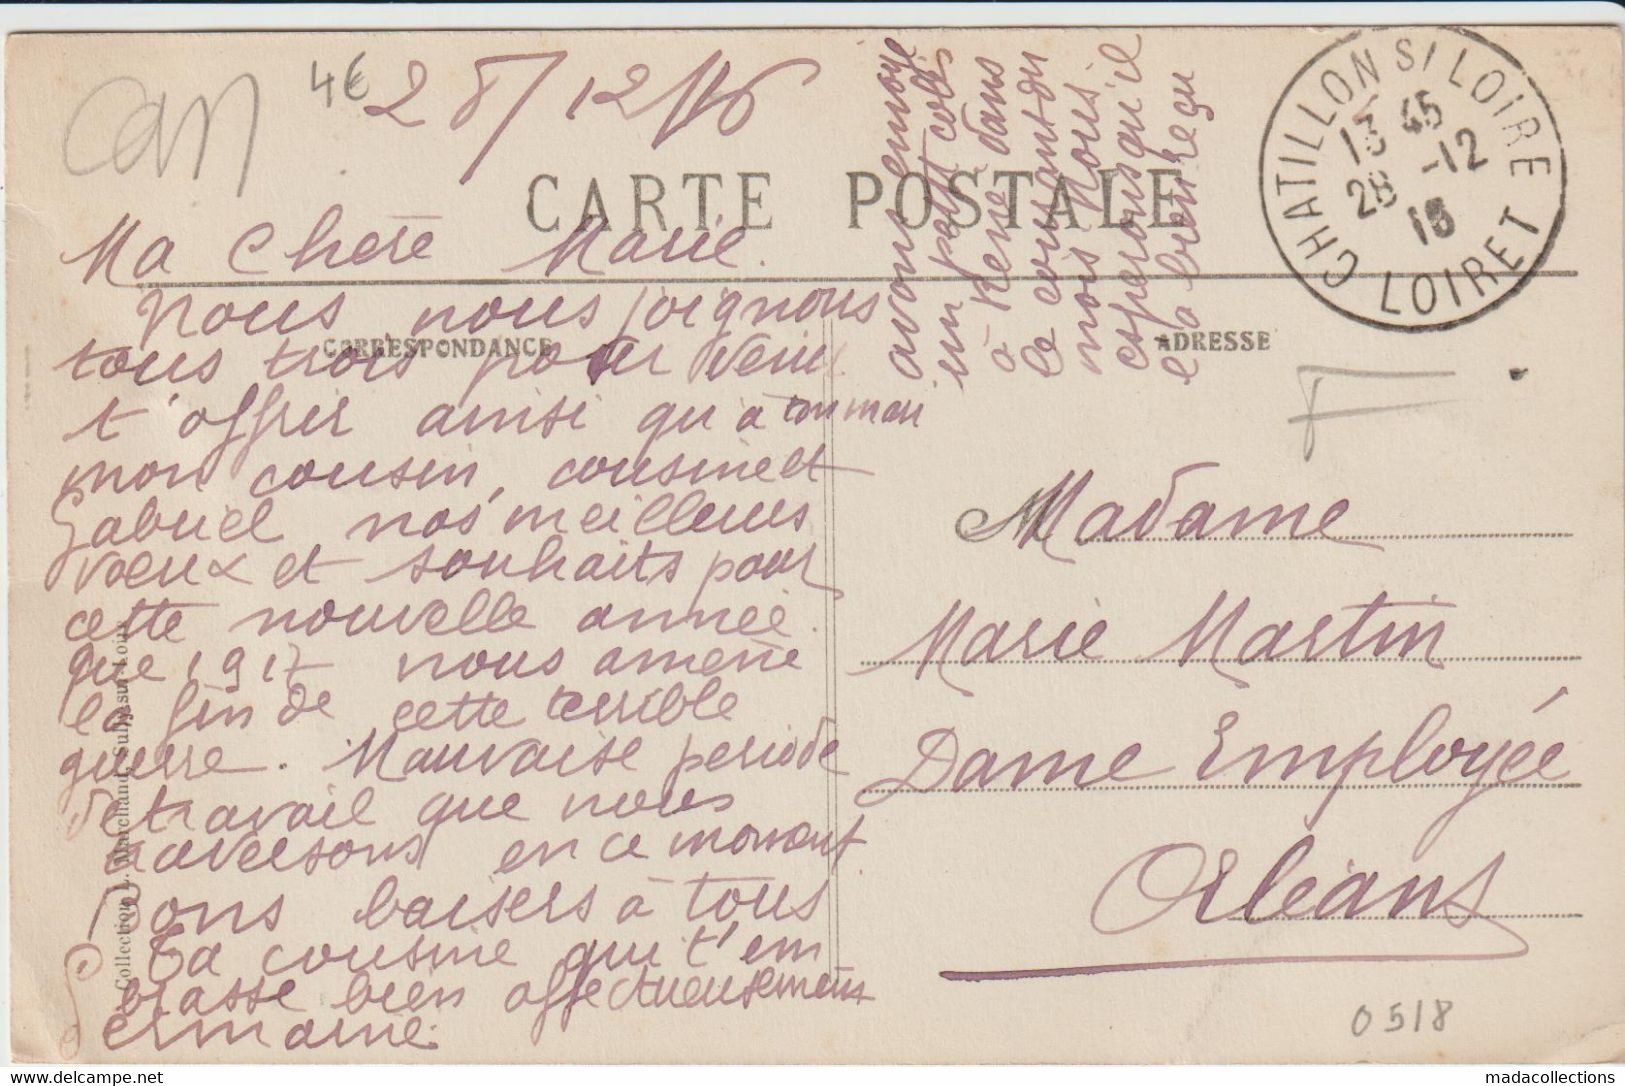 can
4€
28/12/16
CARTE POSTALE
CHATILLON S/ LOIRE
13 45
28 -12
16
LOIRET
CORRESPONDANCE
ADRESSE
Ma Chère Marie.
Nous nous joignons
tous trois pour venir
t'offrir ainsi qu'à ton mari
mon cousin, cousine et
Gabriel nos meilleurs
vœux et souhaits pour
cette nouvelle année.
que 1917 nous amène
la fin de cette terrible
guerre. Mauvaise periode
de travail que nous
traversons en ce moment
Bons baisers à tous
Ta cousine qui t'em
brasse bien affectueusement
Germaine.
avons envoyé
un petit colis
à René dans
le courant du
mois nous
esperons qu'il
l'a bien reçu
Madame
Marie Martin
Dame Employée
Orléans
Collection L. Marchand, Sully-sur-Loire
0518
Ma maison de vente en ligne : madacollections
www.delcampe.net
madacollections